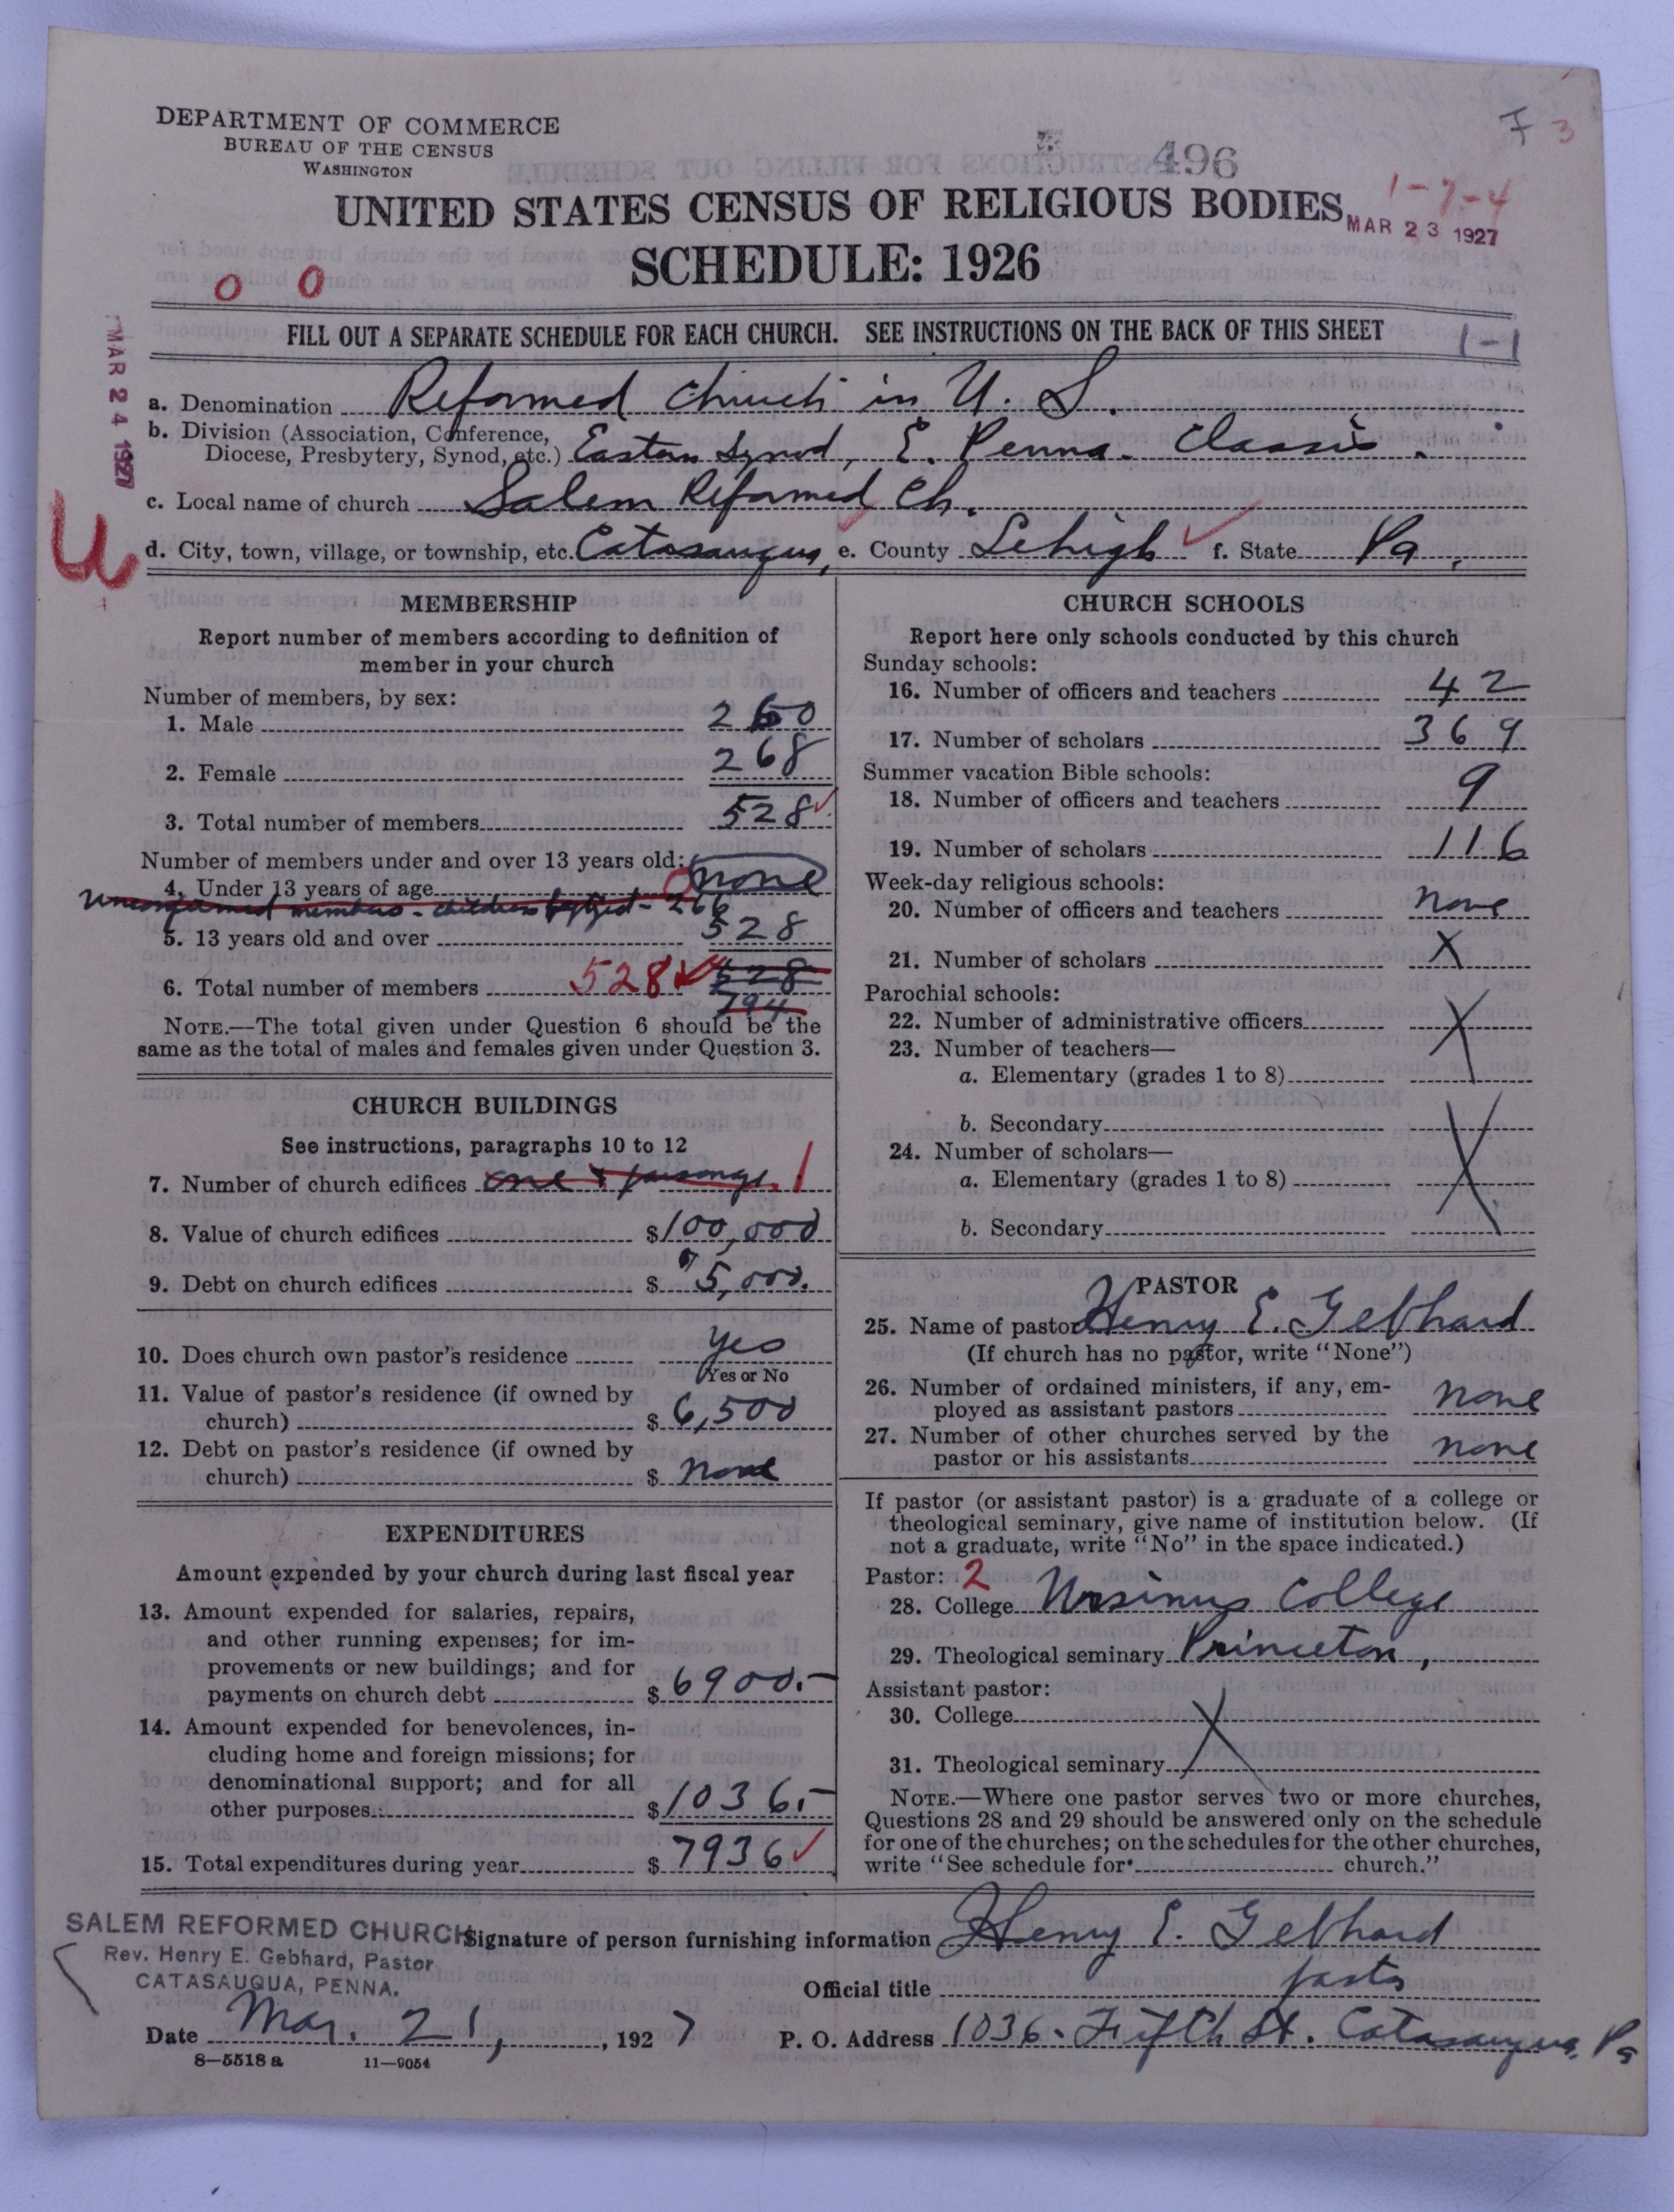 DEPARTMENT OF COMMERCE
BUREAU OF THE CENSUS
WASHINGTON
F 3
496
1-7-4
UNITED STATES CENSUS OF RELIGIOUS BODIES
MAR 23 1927
SCHEDULE: 1926
0 0
FILL OUT A SEPARATE SCHEDULE FOR EACH CHURCH. SEE INSTRUCTIONS ON THE BACK OF THIS SHEET
1-1
MAR 24 1927
a. Denomination Reformed Church in U. S.
b. Division (Association, Conference,
Diocese, Presbytery, Synod, etc.) Eastern Synod, E. Penna. Classis.
c. Local name of church Salem Reformed Ch.
d. City, town, village, or township, etc. Catasauqua, e. County Lehigh f. State Pa.
MEMBERSHIP
Report number of members according to definition of
member in your church
Number of members, by sex:
1. Male 260
2. Female 268
3. Total number of members 528
Number of members under and over 13 years old:
4. Under 13 years of age none
Unconfirmed members - children baptized - 266
5. 13 years old and over 528
6. Total number of members 528 528
794
NOTE.—The total given under Question 6 should be the
same as the total of males and females given under Question 3.
CHURCH BUILDINGS
See instructions, paragraphs 10 to 12
7. Number of church edifices one & parsonage. 1
8. Value of church edifices $100,000
9. Debt on church edifices $ 5,000.
10. Does church own pastor's residence yes
Yes or No
11. Value of pastor's residence (if owned by
church) $ 6,500
12. Debt on pastor's residence (if owned by
church) $ none
EXPENDITURES
Amount expended by your church during last fiscal year
13. Amount expended for salaries, repairs,
and other running expenses; for im-
provements or new buildings; and for
payments on church debt $ 6900.-
14. Amount expended for benevolences, in-
cluding home and foreign missions; for
denominational support; and for all
other purposes $ 1036.-
15. Total expenditures during year $ 7936
CHURCH SCHOOLS
Report here only schools conducted by this church
Sunday schools:
16. Number of officers and teachers 42
17. Number of scholars 369
Summer vacation Bible schools:
18. Number of officers and teachers 9
19. Number of scholars 116
Week-day religious schools:
20. Number of officers and teachers none
21. Number of scholars X
Parochial schools:
22. Number of administrative officers X
23. Number of teachers—
a. Elementary (grades 1 to 8)
b. Secondary X
24. Number of scholars—
a. Elementary (grades 1 to 8)
b. Secondary
PASTOR
25. Name of pastor Henry E. Gebhard
(If church has no pastor, write "None")
26. Number of ordained ministers, if any, em-
ployed as assistant pastors none
27. Number of other churches served by the
pastor or his assistants none
If pastor (or assistant pastor) is a graduate of a college or
theological seminary, give name of institution below. (If
not a graduate, write "No" in the space indicated.)
Pastor: 2
28. College Ursinus College
29. Theological seminary Princeton,
Assistant pastor:
30. College X
31. Theological seminary
NOTE.—Where one pastor serves two or more churches,
Questions 28 and 29 should be answered only on the schedule
for one of the churches; on the schedules for the other churches,
write "See schedule for church."
SALEM REFORMED CHURCH
Rev. Henry E. Gebhard, Pastor
CATASAUQUA, PENNA.
Signature of person furnishing information Henry E. Gebhard
Official title pastor
Date Mar. 21, 1927 P. O. Address 1036- Fifth St. Catasauqua, Pa
8—5518 a 11—9054